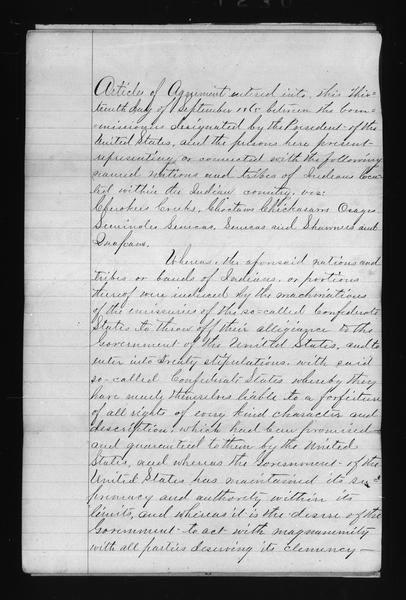 Articles of Agreement entered into this thir=
teenth day of September 1865 between the Com=
missioners designated by the President of the
United States, and the persons here present
representing or connected with the following
named nations and tribes of Indians loca=
ted within the Indian country, viz:
Cherokees Creeks, Choctaws Chickasaws Osages
Seminoles Senecas, Senecas and Shawnees and
Quapaws.
Whereas, the aforesaid nations and
tribes or bands of Indians, or portions
thereof were induced by the machinations
of the emissaries of the so-called Confederate
States to throw off their allegiance to the
Government of the United States, and to
enter into treaty stipulations, with said
so-called Confederate States whereby they
have made themselves liable to a forfeiture
of all rights of every kind character and
description, which had been promised
and guaranteed to them by the United
States, and whereas the Government of the
United States has maintained its su=
premacy and authority within its
limits, and whereas it is the desire of the
Government to act with magnanimity
with all parties deserving its clemency —